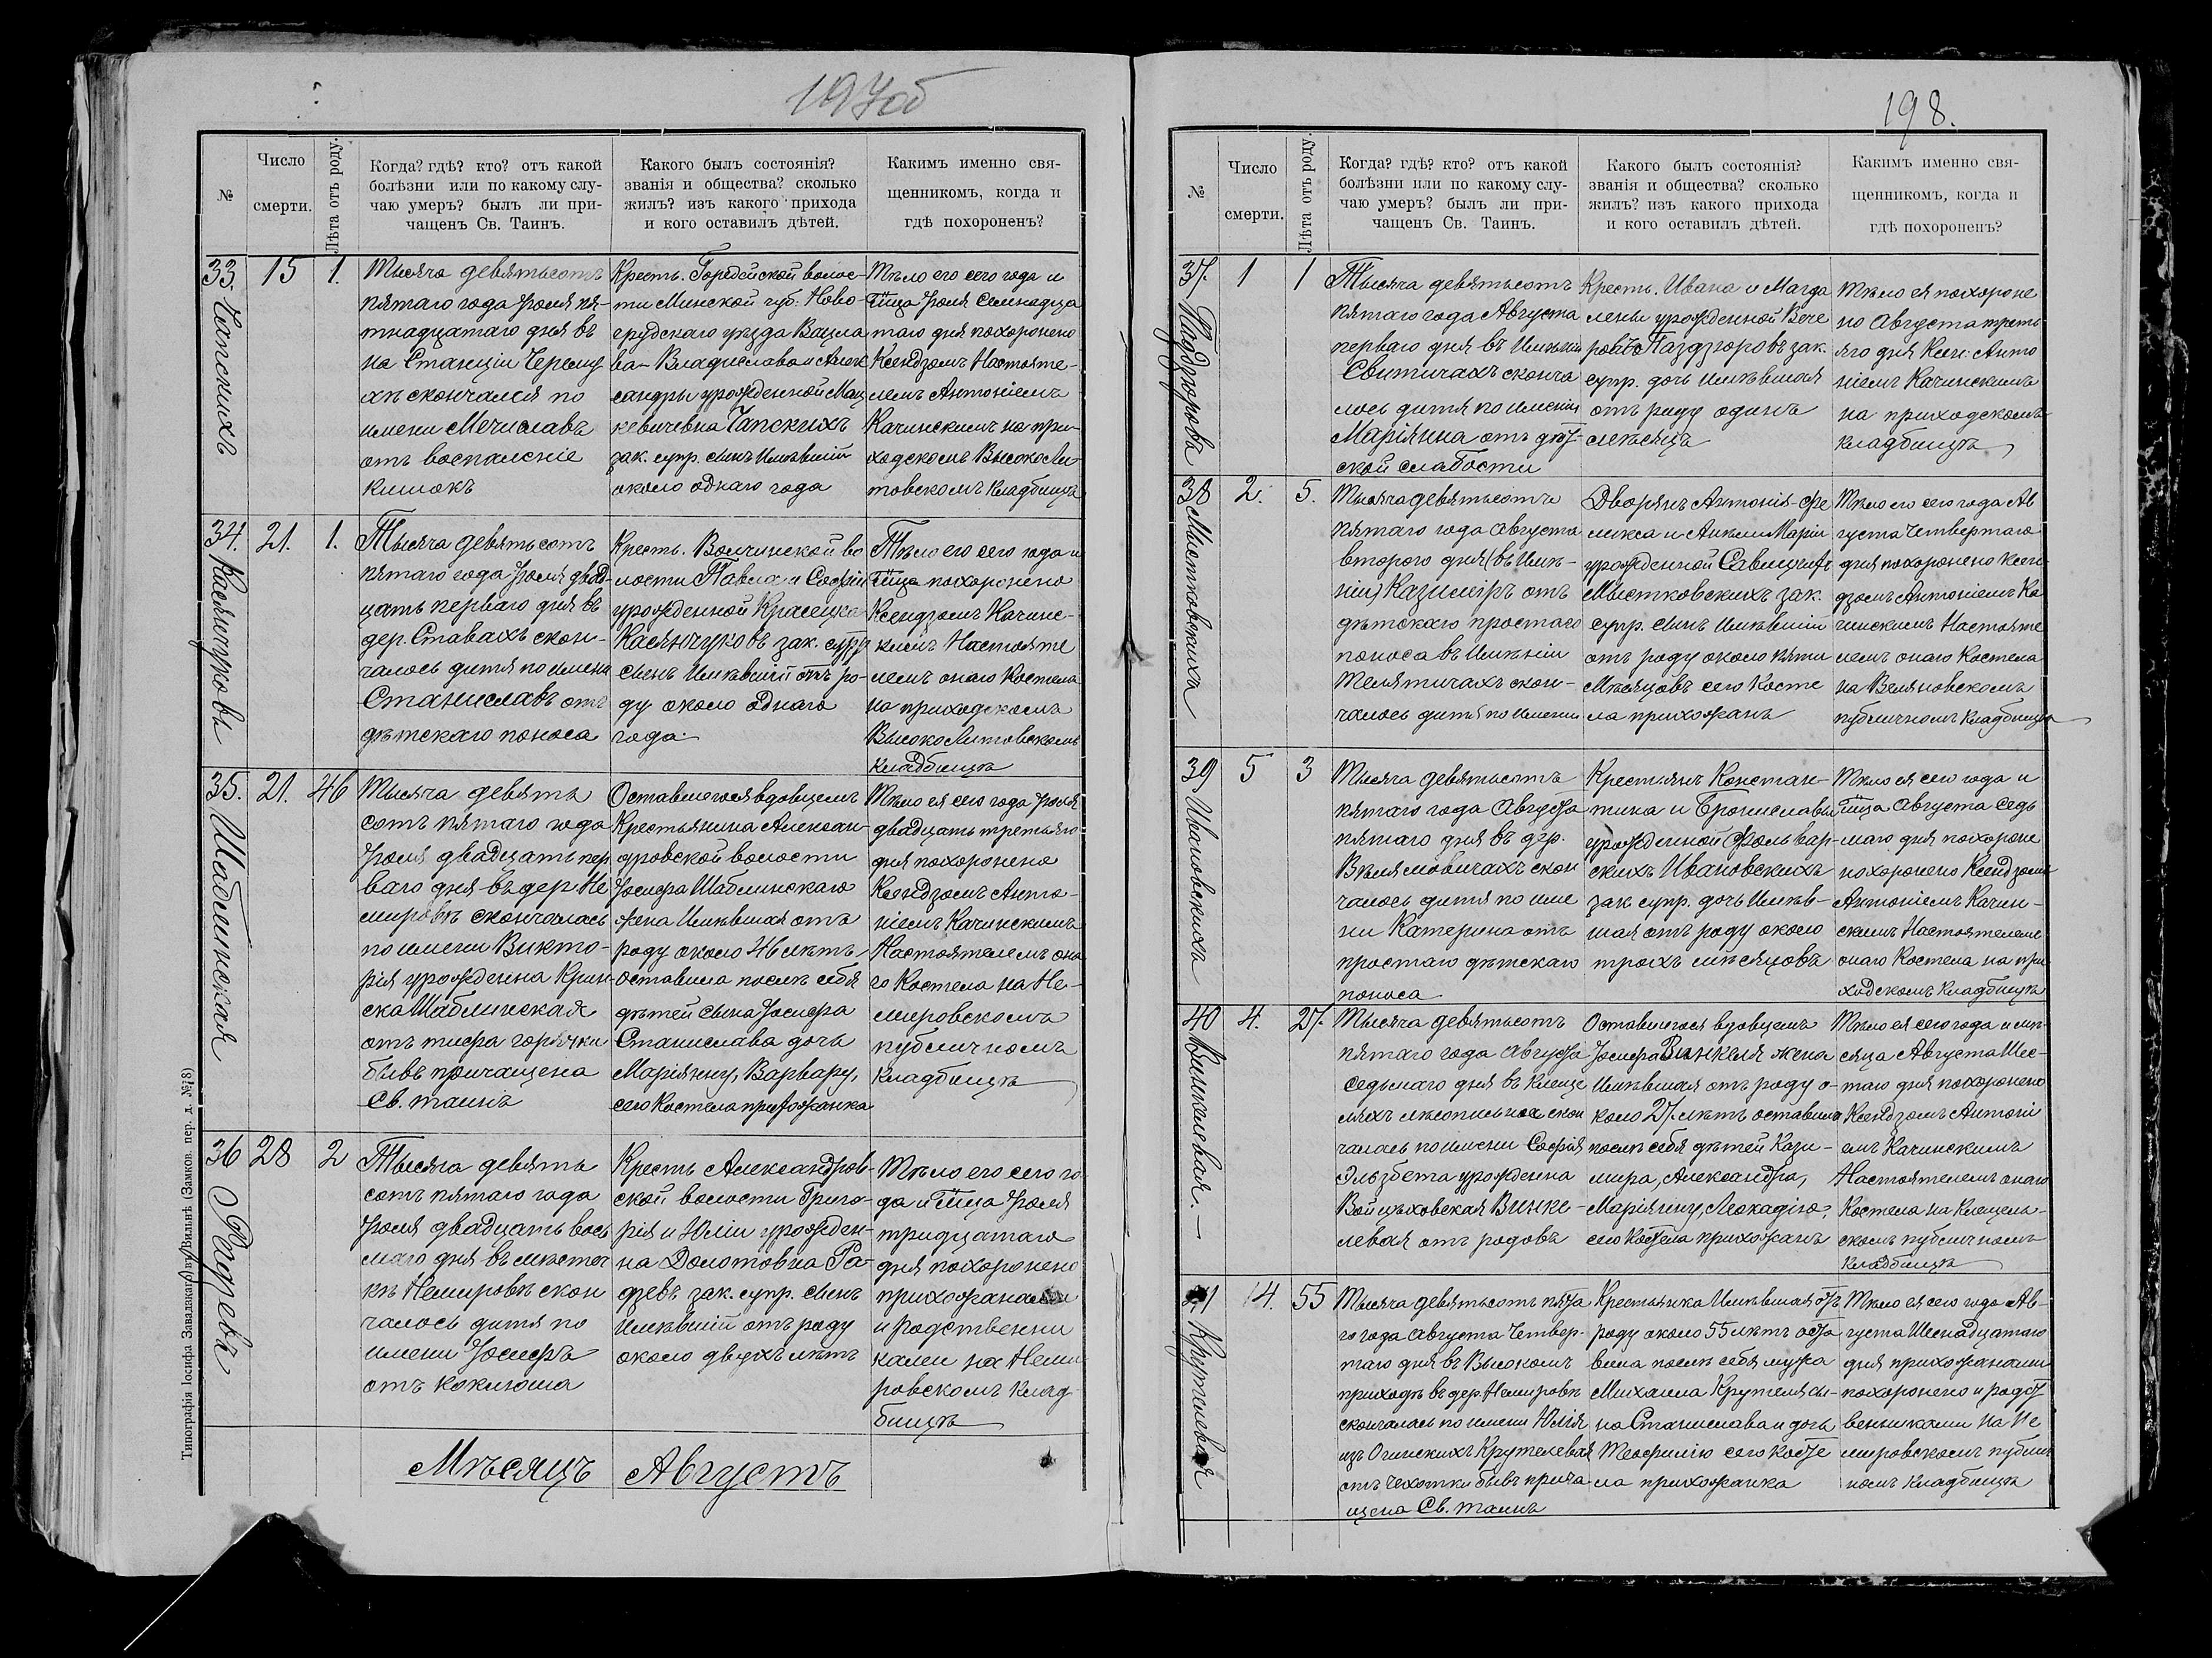 197об
№
Число
смерти.
Лѣта отъ роду.
Когда? гдѣ? кто? отъ какой
болѣзни или по какому слу-
чаю умеръ? былъ ли при-
чащенъ Св. Таинъ.
Какого былъ состоянія?
званія и общества? сколько
жилъ? изъ какого прихода
и кого оставилъ дѣтей.
Какимъ именно свя-
щенникомъ, когда и
гдѣ похороненъ?
33.
Чапскихъ
15
1.
Тысяча девятьсотъ
пятаго года Іюля пя-
тнадцатаго дня въ
на Станціи Черему
хѣ скончался по
имени Мечиславъ
отъ воспаленіе
кишокъ
Кресть. Городейской волос-
ти Минской губ. Ново-
грудскаго уѣзда Вацла
ва-Владиславаи Алек
сандры урожденной Мац
кевичевна Чапскихъ
зак. супр. сынъ Имѣвшій
около однаго года
Тѣло его сего года и
т͞ца Іюля Семнадца
таго дня похоронено
Ксендзомъ Настояте-
лемъ Антоніемъ
Качинскимъ на при-
ходскомъ ВысокоЛи-
товскомъ кладбищѣ
34.
Касянчуковъ
21.
1.
Тысяча девятьсотъ
пятаго года Іюля двад-
цать перваго дня въ
дер. Ставахъ скон-
чалось дитя по имени
Станиславъ отъ
дѣтскаго поноса
Кресть. Волчинской во
лости Павла и Софіи
урожденной
Касянчуковъ зак. супр
сынъ Имѣвшій отъ ро-
ду около однаго
года.
Тѣло его сего года и
т͞ца похоронено
Ксендзомъ Качинс-
кимъ Настояте
лемъ онаго Костела
на приходскомъ
ВысокоЛитовскомъ
кладбищѣ
35.
Шаблинская
21.
46
Тысяча девять
сотъ пятаго года
Іюля двадцать пер
ваго дня въ дер Не
мировѣ скончалась
по имени Викто-
рія урожденна Крин-
ска Шаблинская
отъ тифа горячки
бывъ причащена
Св. таинъ
Оставшегося вдовцемъ
Крестьянина Алексан-
дровской волости
Іосифа Шаблинскаго
жена Имѣвшая отъ
роду около 46 лѣтъ,
оставила послѣ себя
дѣтей сына Іосифа
Станислава дочь
Маріянну, Варвару,
сего Костела прихожанка
Тѣло ея сего года Іюля
двадцать третьяго
дня похоронено
Ксендзомъ Анто-
ніемъ Качинскимъ
Настоятелемъ она
го Костела на Не-
мировскомъ
публичномъ
кладбищѣ
36
Радзевъ
28
2
Тысяча девять
сотъ пятаго года
Іюля двадцать вось
маго дня въ мѣстеч
кѣ Немировѣ скон
чалось дитя по
имени Іосифъ
отъ коклюша
Кресть Александров-
ской волости Григо-
рія и Юліи урожден-
на Долотовна Ра-
дзевъ зак. супр. сынъ
Имѣвшій отъ роду
около двухъ лѣтъ
Тѣло его сего го-
да и т͞ца Іюля
тридцатаго
дня похоронено
прихожанами
и родственни
ками на Неми
ровскомъ клад-
бищѣ
Мѣсяцъ Августъ
Типографія Іосифа Завадзкаго въ Вильнѣ (Замков. пер. д. № 8)
198.
№
Число
смерти.
Лѣта отъ роду.
Когда? гдѣ? кто? отъ какой
болѣзни или по какому слу-
чаю умеръ? былъ ли при-
чащенъ Св. Таинъ.
Какого былъ состоянія?
званія и общества? сколько
жилъ? изъ какого прихода
и кого оставилъ дѣтей.
Какимъ именно свя-
щенникомъ, когда и
гдѣ похороненъ?
37.
1
1
Тысяча девятьсотъ
пятаго года Августа
перваго дня въ Имѣніи
Свитичахъ сконча
лось дитя по имени
Маріянна отъ дѣт-
ской слабости
Кресть. Ивана и Магда
лены урожденной Вече
ровъ Паздзгоровъ зак.
супр. дочь имѣвшая
отъ роду одинъ
мѣсяцъ
Тѣло ея похороне
но Августа треть
яго дня Ксен: Анто
ніемъ Качинскимъ
на приходскомъ
кладбищѣ
38
Мыстковскихъ
2.
5.
Тысяча девятьсотъ
пятаго года Августа
второго дня (въ Имѣ-
ніи) Казиміръ отъ
дѣтскаго простаго
поноса въ Имѣніи
Телятичахъ скон-
чалось дитя по имени
Дворянъ Антонія-Фе
ликса и Анели Маріи
урожденной
Мыстковскихъ зак.
супр. сынъ Имѣвшій
отъ роду около пяти
Мѣсяцовъ сего Косте
ла прихожанъ
Тѣло его сего года Ав
густа Четвертаго
дня похоронено Ксен-
дзомъ Антоніемъ Ка
чинскимъ Настояте
лемъ онаго Костела
на Веляновскомъ
публичномъ кладбищѣ
39
Ивановскихъ
5
3
Тысяча девятьсотъ
пятаго года Августа
пятаго дня въ дер.
Вѣлямовичахъ скон
чалось дитя по име
ни Катерина отъ
простаго дѣтскаго
поноса
Крестьянъ Констан-
тина и Брониславы
урожденной Фольвар-
скихъ Ивановскихъ
зак супр. дочь Имѣв-
шая отъ роду около
троихъ мѣсяцовъ
Тѣло ея сего года и
т͞ца Августа Седь
маго дня похороне
похоронено Ксендзомъ
Антоніемъ Качин-
скимъ Настоятелемъ
онаго Костела на при
ходскомъ кладбищѣ
40
Винкелевая.—
4.
27.
Тысяча девятьсотъ
пятаго года Августа
седьмаго дня въ Клеще
ляхъ скон
чалась по имени Софія
Эльзбета урожденна
Войцѣховская Винке-
левая отъ родовъ
Оставшегося вдовцемъ
Іосифа Винкеля жена
Имѣвшая отъ роду о-
коло 27 лѣтъ оставила
послѣ себя дѣтей Кази-
мира, Александра,
Маріянну, Леокадію,
сего Костела прихожанъ
Тѣло ея сего года и мѣ-
сяца Августа Шес-
таго дня похоронено
Ксендзомъ Антоні
емъ Качинскимъ
Настоятелемъ онаго
Костела на Клещель-
скомъ публичномъ
кладбищѣ
41
14.
55
Тысяча девятьсотъ пята
го года Августа Четвер-
таго дня въ Высокомъ
приходѣ въ дер. Немировѣ
скончалась по имени Юлія
изъ Огинскихъ Крутелевая
отъ Чехотки бывъ прича
щена Св. таинъ
Крестьянка Имѣвшая отъ
роду около 55 лѣтъ оста
вила послѣ себя мужа
Михаила Крутеля сы-
на Станислава и дочь
Теофилію сего Косте
ла прихожанка
Тѣло ея сего года Ав-
густа Шеснадцатаго
дня прихожанами
похоронено и родст
венниками на Не
мировскомъ публич
номъ кладбищѣ